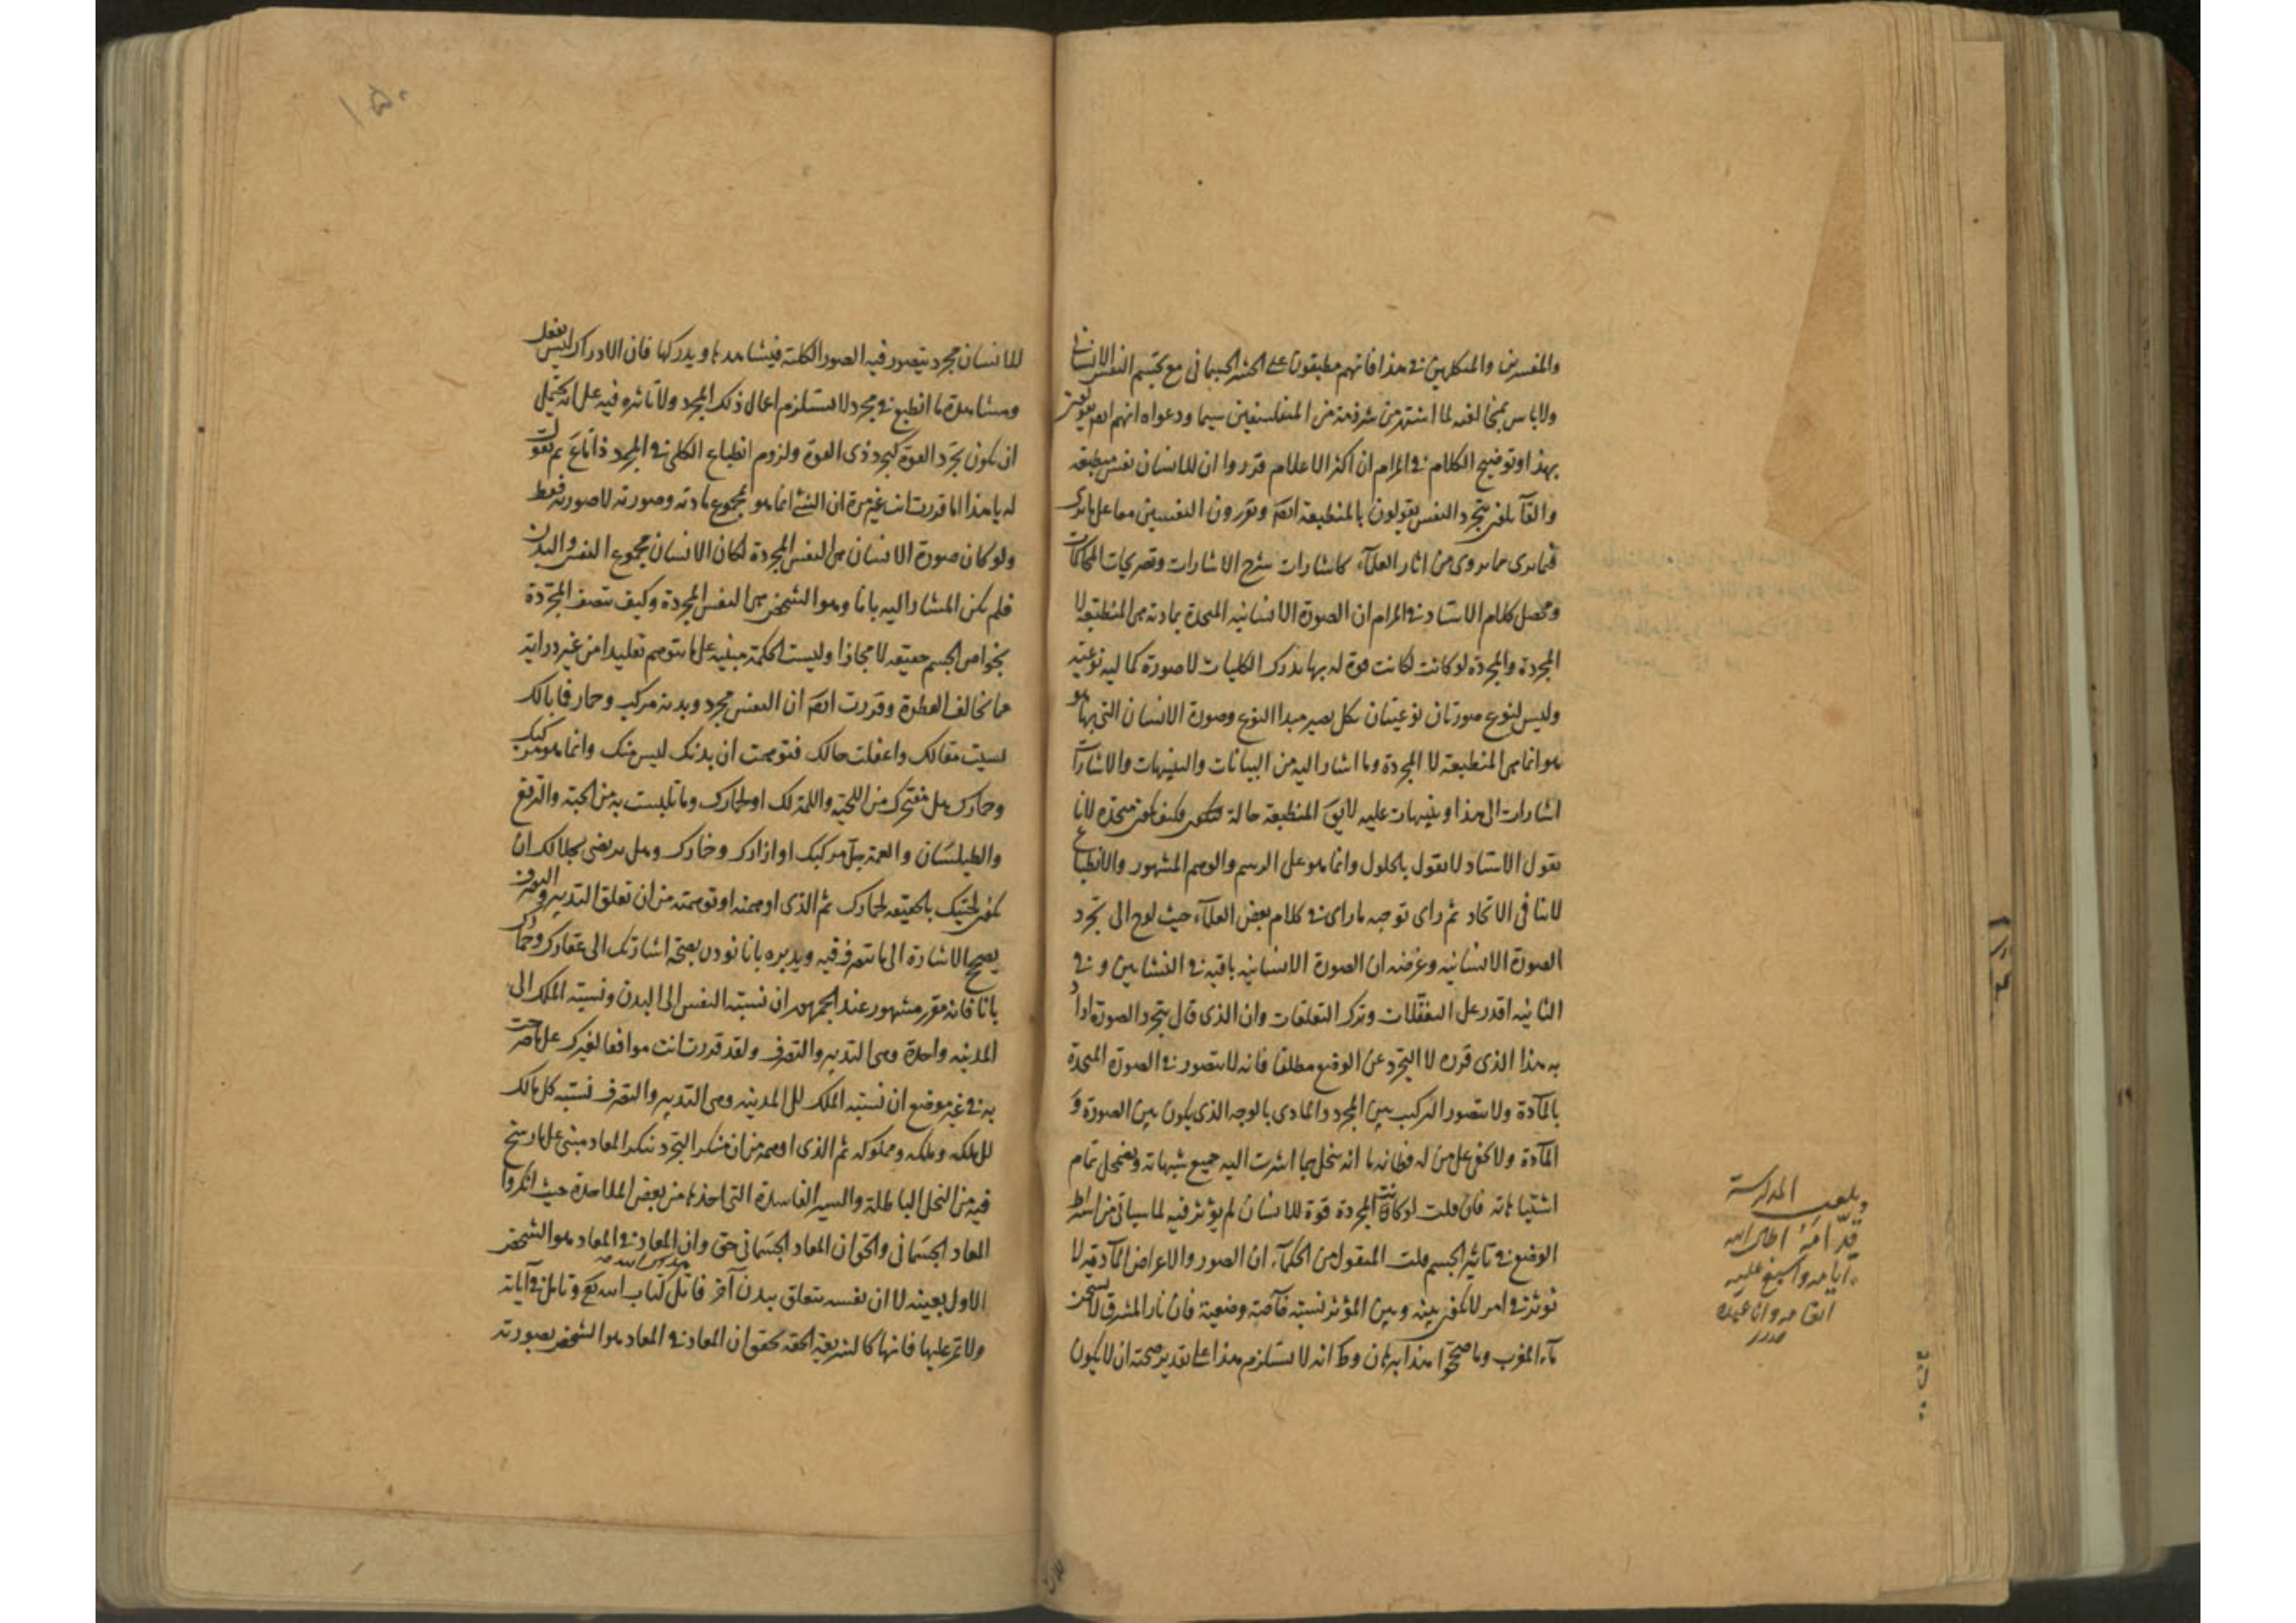 والمفسرين والمتكلمين في هذا فانهم مطبقون على الحشر الجسماني مع تجسم النفس الانساني
ولا باس بمخالفته لما اشتهر من شرذمة من المتفلسفين سيما ودعواه انهم ايض
بهذا وتوضيح الكلام في المرام ان اكثر الاعلام قرروا ان للانسان نفس منطبعه
والقائلون بتجرد النفس يقولون بالمنطبعة ايض ويقررون النفسين معا على ما نرى
فيما نرى مما يروى من اثار العلماء كاشارات شرح الاشارات وتصريحات المحاكمات
ومحصل كلام الاستاد في المرام ان الصورة الانسانيه المتحدة بمادته هي المنطبعة لا
المجردة والمجردة لو كانت لكانت قوة له بها يدرك الكليات لا صورة كماليه نوعية
وليس لنوع صورتان نوعيتان بكل يصير مبدا النوع وصورة الانسان التي بها هو
هو انما هي المنطبعة لا المجردة وما اشار اليه من البيانات والتنبيهات والاشارات
اشارات الى هذا وتنبيهات عليه لا يق المنطبعة حالة فكيف متحدة لانا
نقول الاستاد لا يقول بالحلول وانما هو على الرسم والوهم المشهور والانطباع
لا ينافي الاتحاد ثم راى توجيه ما راى في كلام بعض العلماء حيث لوح الى تجرد
الصورة الانسانيه وغرضه ان الصورة الانسانيه باقيه في النشاتين و في
الثانيه اقدر على التعقلات وترك التعلقات وان الذي قال بتجرد الصورة اراد
به هذا الذي قرره لا التجرد عن الوضع مطلقا فانه لا يتصور في الصورة المتحدة
بالمادة ولا يتصور التركيب بين المجرد والمادي بالوجه الذي يكون بين الصورة و
المادة ولا يخفى على من له فطانة ما انه ينحل بما اشرت اليه جميع شبهاته ويضمحل تمام
اشتباهاته فان قلت لو كانت المجردة قوة للانسان لم يؤثر فيه لما سياتي من اشتراط
الوضع في تاثير الجسم قلت المنقول من الحكماء ان الصور والاعراض المادية لا
تؤثر في امر لا يكون بينه وبين المؤثر نسبة خاصة وضعية فان نار المشرق لا يسخن
ماء المغرب وما صححوا هذا ببرهان وظ انه لا يستلزم هذا على تقدير صحته ان لا يكون
المدرسة
للانسان مجرد يتصور فيه الصور الكلية فيشاهدها ويدركها فان الادراك ليس بفعل
ومشاهدة ما انطبع في مجرد لا يستلزم اعمال ذلك المجرد ولا تاثره فيه على انه يحتمل
ان يكون تجرد القوة كتجرد ذي القوة ولزوم انطباع الكلي في المجرد ذاتا ثم نقول
له يا هذا اما قررت انت غير مرة ان الشئ انما هو مجموع مادته وصورته لا صورته فقط
ولو كان صورة الانسان هي النفس المجردة لكان الانسان مجموع النفس والبدن
فلم يكن المشار اليه بانا وهو الشخص هي النفس المجردة وكيف تتصف المجردة
بخواص الجسم حقيقه لا مجازا وليست الحكمة مبنيه على ما يتوهم تقليدا من غير دراية
مما يخالف الفطرة وقررت ايض ان النفس مجرد وبدنه مركب وحمار فما بالك
نسيت مقالك واغفلت حالك فتوهمت ان بدنك ليس منك وانما هو مركبك
وحمارك هل تفتحرك من اللحية واللمة لك او لحمارك وما تلبست به من الجبة والدرع
والطيلسان والعمة جل مركبك او ازارك وخمارك وهل يرضى بجلالك ان
يكون لحيتك بالحقيقه لحمارك ثم الذي اوهمه او توهمته من ان تعلق التدبير والتصرف
يصحح الاشارة الى ما يتصرف فيه ويدبره بانا نودى بصحة اشارتك الى عقارك وحمارك
بانا فانه مقرر مشهور عند الجمهور ان نسبة النفس الى البدن ونسبة الملك الى
المدينه واحدة وهي التدبير والتصرف ولقد قررت انت موافقا لغيرك على ما صرحت
به في غير موضع ان نسبة الملك الى المدينه وهي التدبير والتصرف نسبة كل مالك
الى ملكه وملكه ومملوكه ثم الذي اوهمه من ان منكر التجرد ينكر المعاد مبني على ما رسخ
فيه من النحل الباطلة والسير الفاسدة التي اخذها من بعض الملاحدة حيث انكروا
المعاد الجسماني والحق ان المعاد الجسماني حق وان المعاد في المعاد هو الشخص
الاول بعينه لا ان نفسه يتعلق ببدن آخر فاتل كتاب الله تع وتامل في آياته
ولا تمر عليها فانها كالشريعة الحقه تحقق ان المعاد في المعاد هو الشخص بصورته
١٥٠